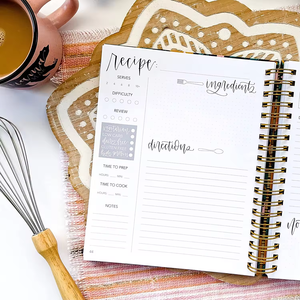 recipe:
SERVES
ingredients
DIFFICULTY
REVIEW
directions
TIME TO PREP
TIME TO COOK
NOTES